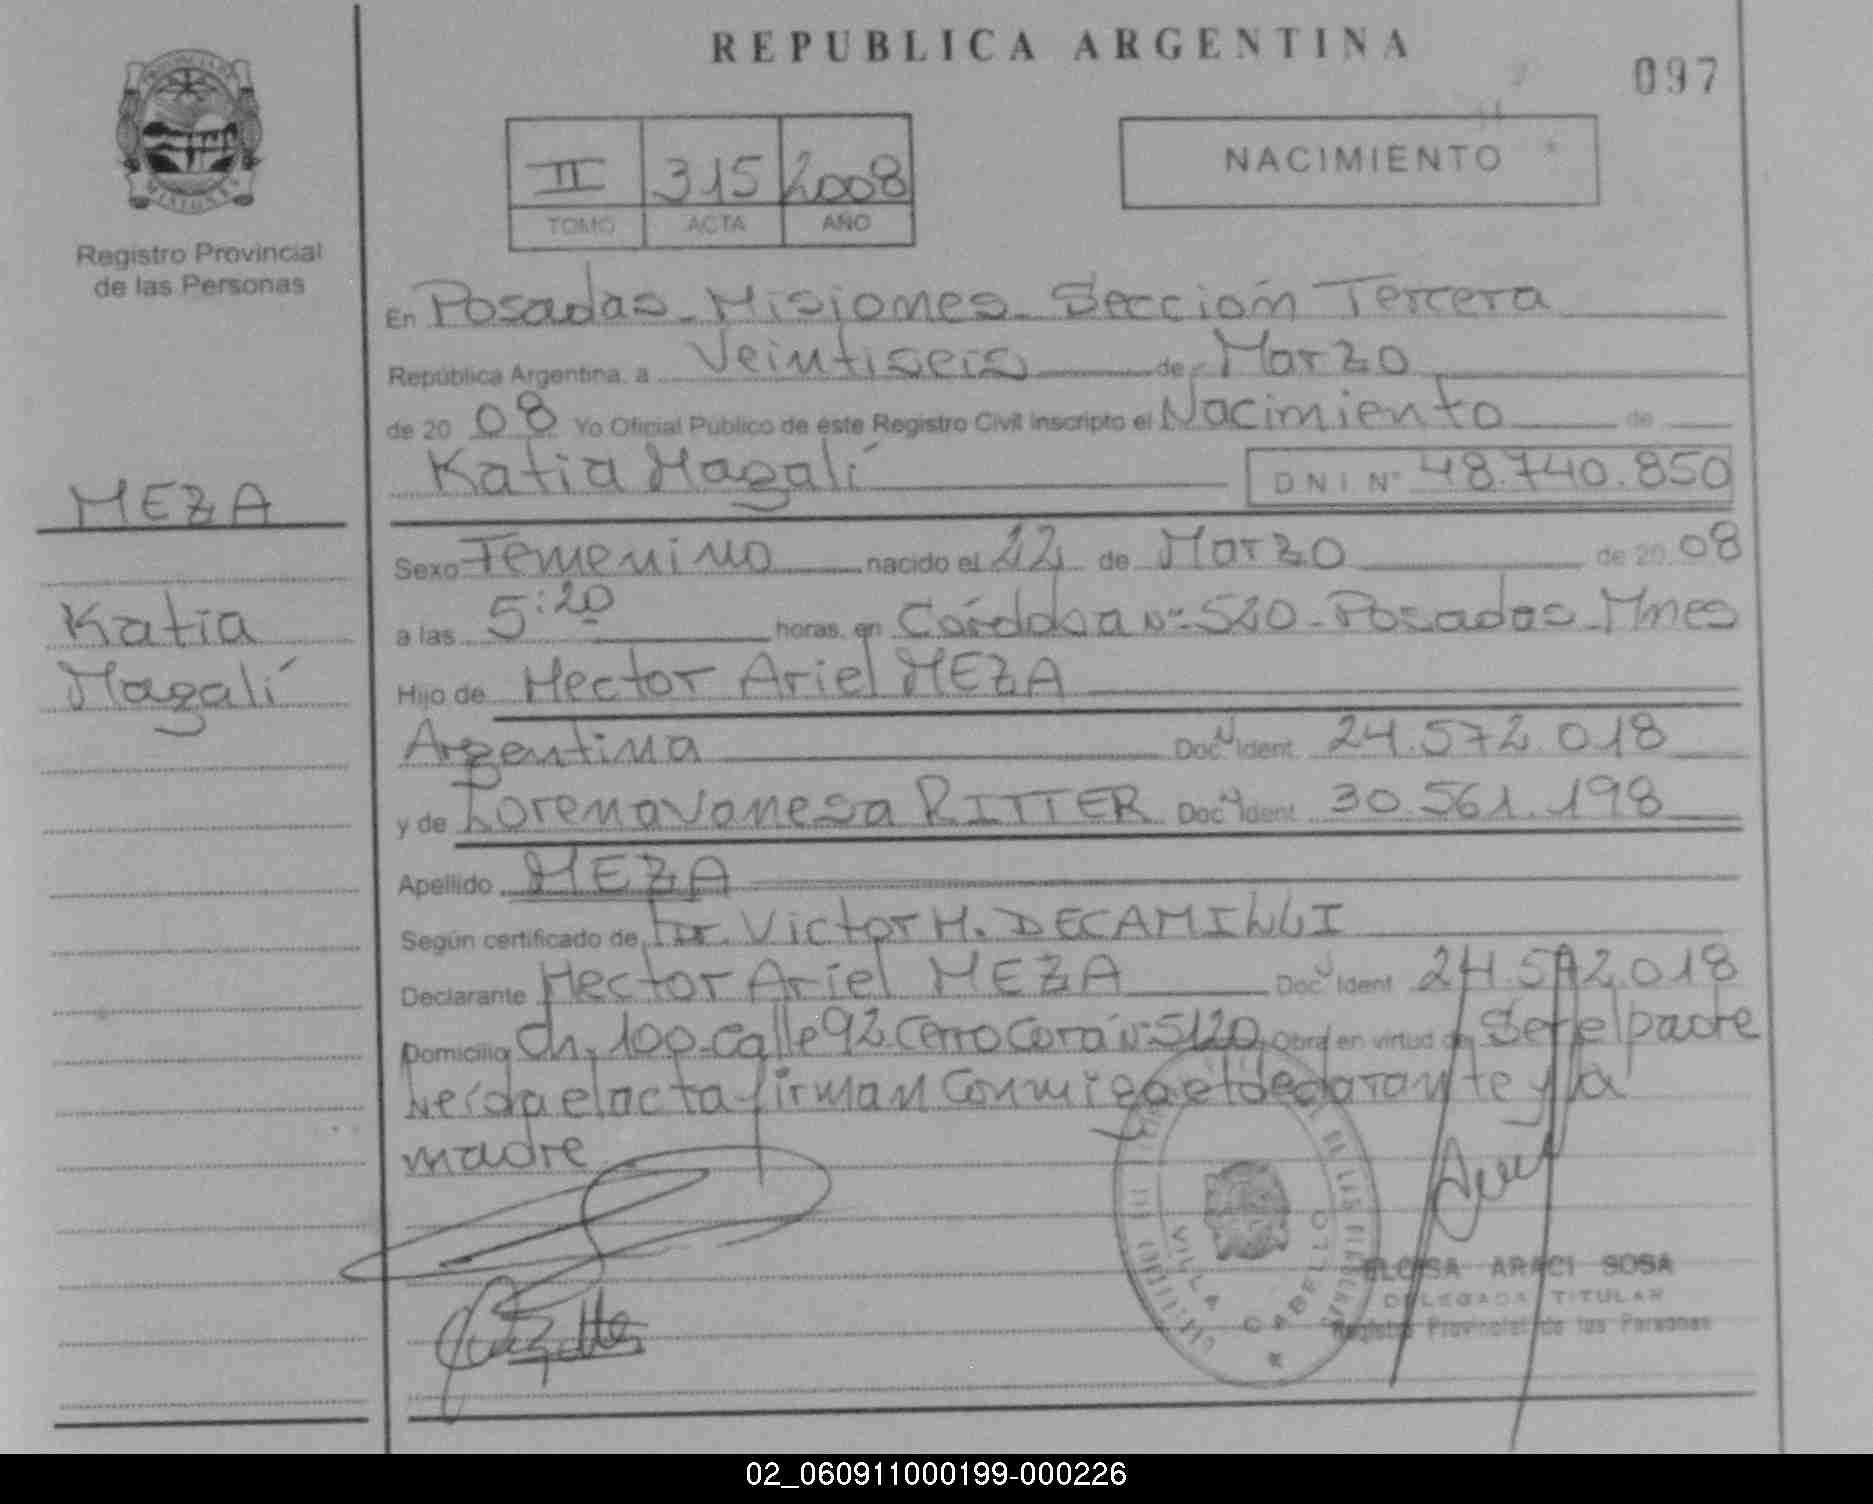 REPUBLICA ARGENTINA
097
II 315 2008
TOMO ACTA AÑO
NACIMIENTO
Registro Provincial
de las Personas
MEZA
Katia
Magalí
En Posadas - Misiones - Sección Tercera
República Argentina, a Veintiseis de Marzo
de 20 08 Yo Oficial Público de éste Registro Civil inscripto el Nacimiento de
Katia Magalí D N I Nº 48.740.850
Sexo Femenino nacido el 22 de Marzo de 20 08
a las 5:20 horas, en Córdoba Nº 520 - Posadas - Mnes
Hijo de Hector Ariel MEZA
Argentina Doc Ident 24.572.018
y de Lorena Vanesa RITTER Doc Ident 30.561.198
Apellido MEZA
Según certificado de Dr. Victor H. DECAMILLI
Declarante Hector Ariel MEZA Doc Ident 24.572.018
Domicilio Ch. 100 - calle 92 Cerro Corá Nº 5120 Obra en virtud de Ser el padre
Leída el acta firman Conmigo el declarante y la
madre
VILLA CABELLO
ELOISA ARACI SOSA
DELEGADA TITULAR
Registro Provincial de las Personas
02_060911000199-000226